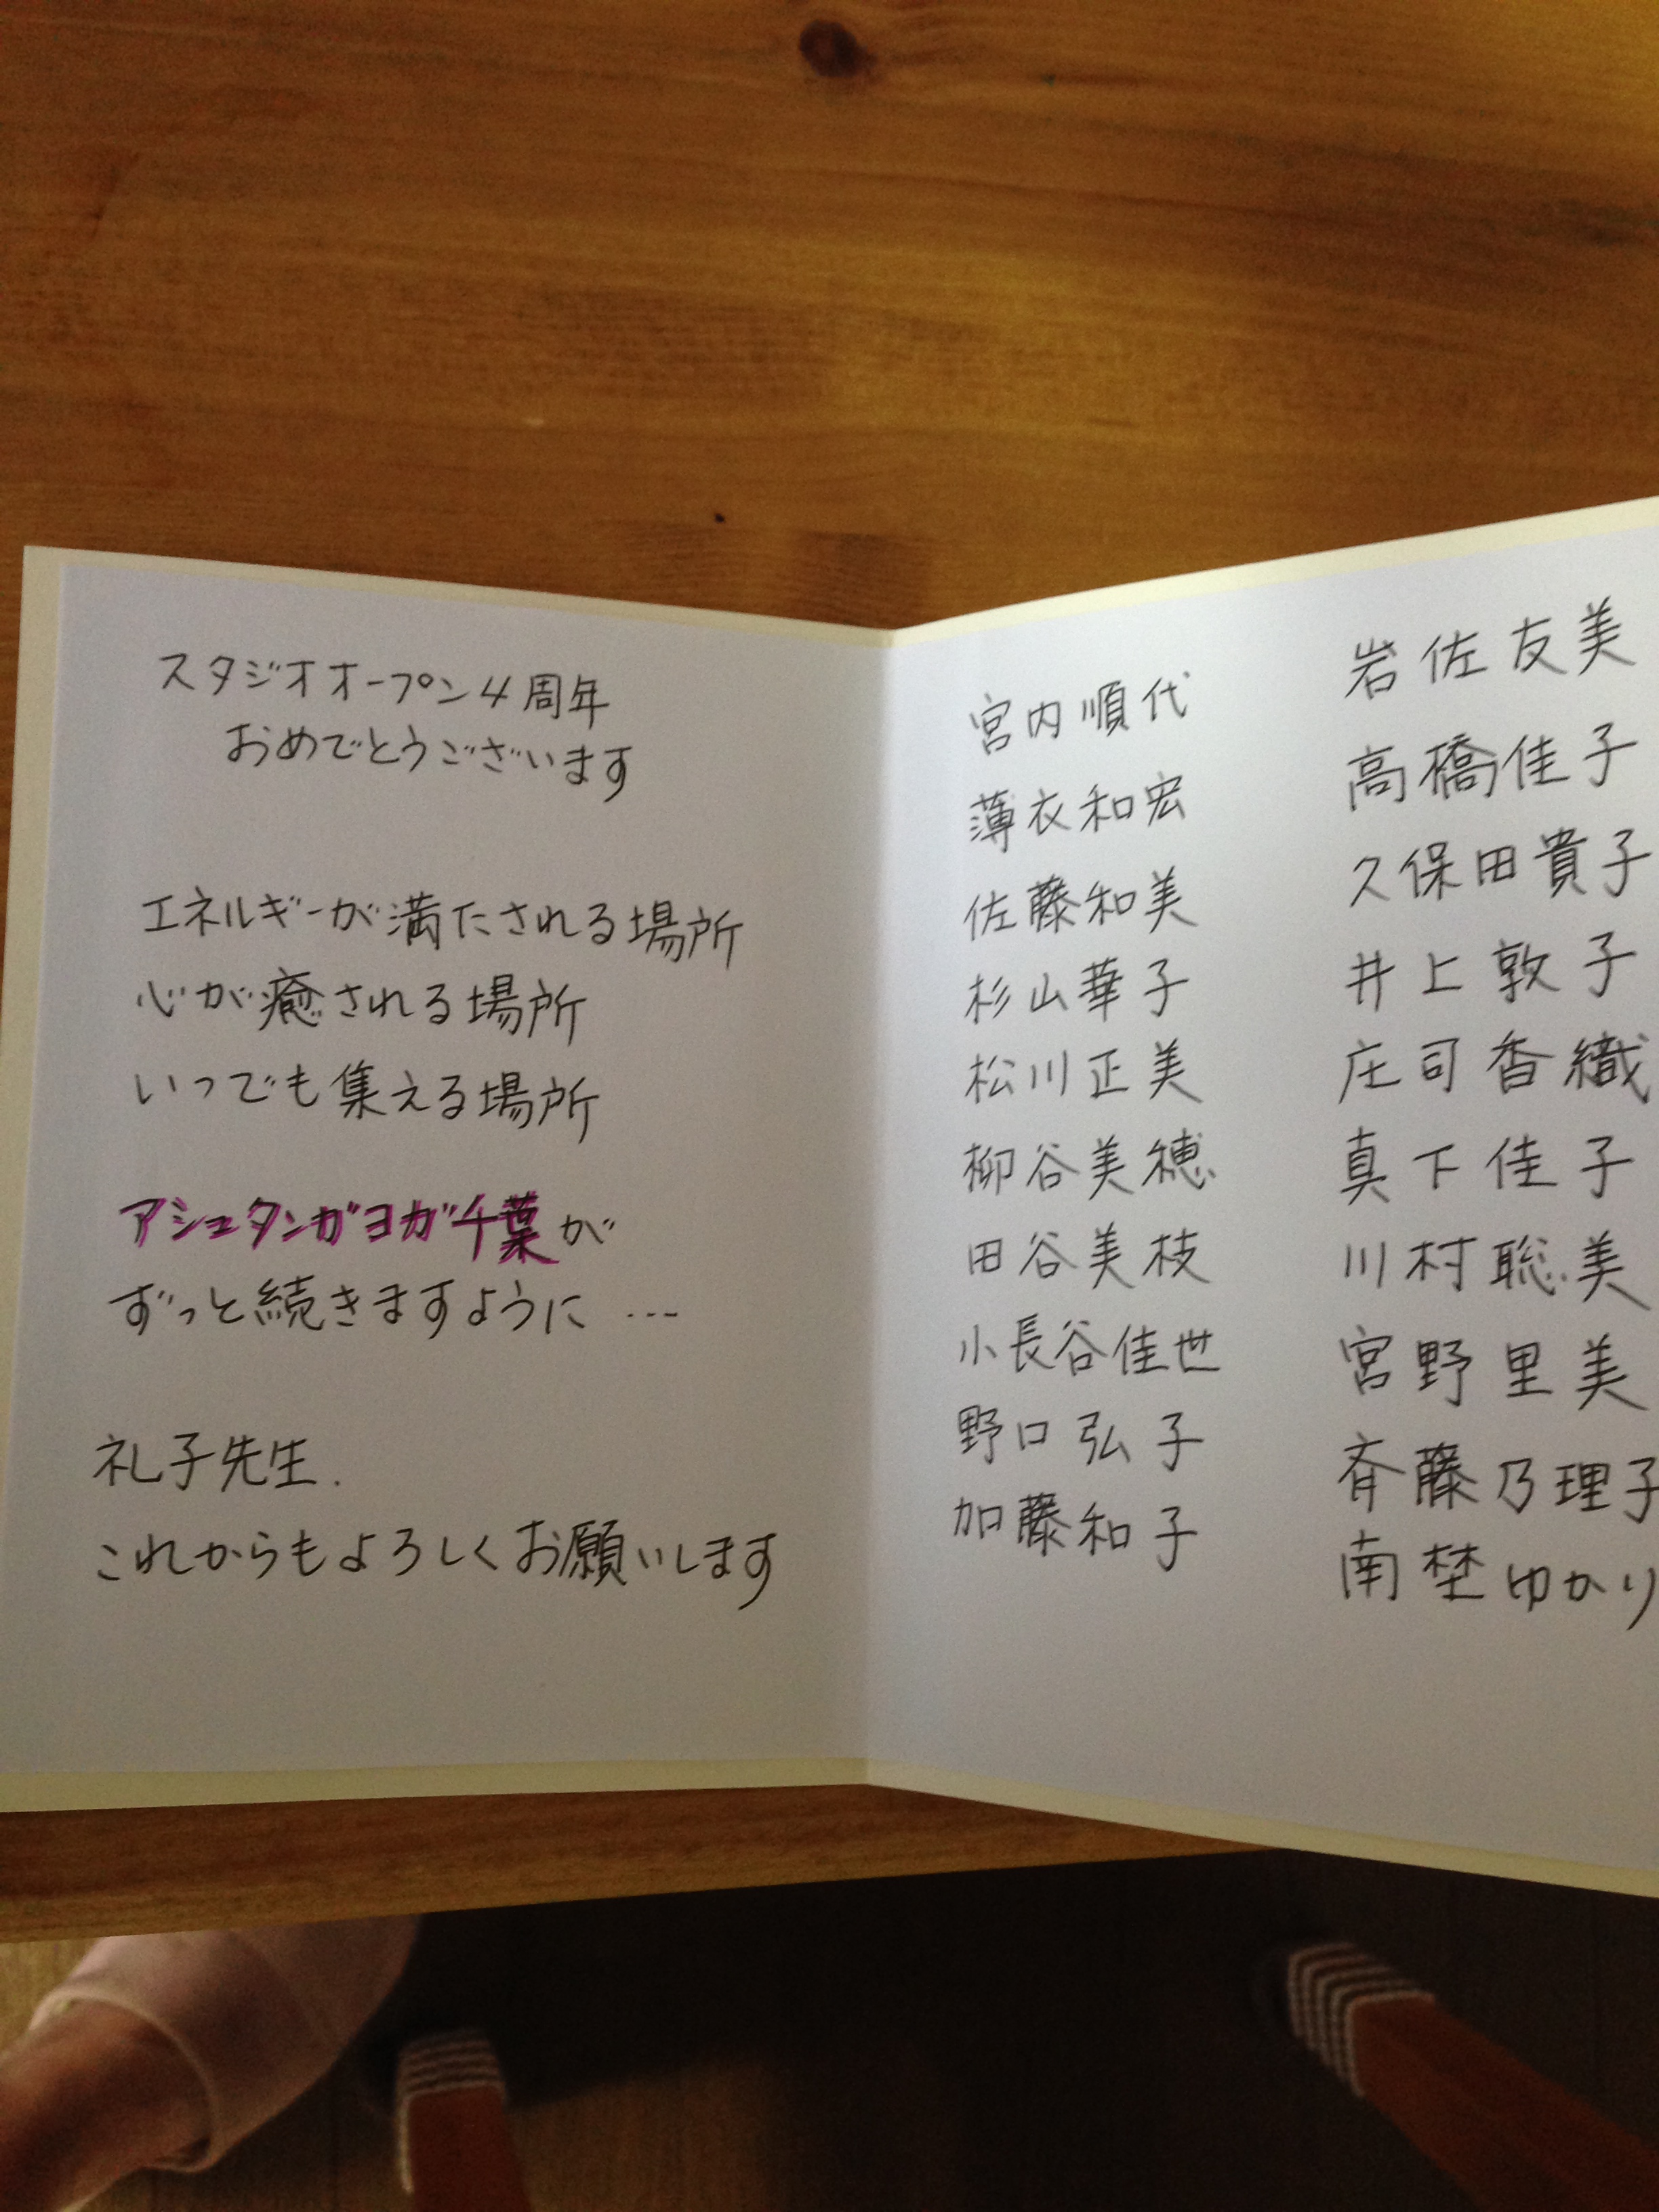 スタジオオープン4周年
おめでとうございます
エネルギーが満たされる場所
心が癒される場所
いつでも集える場所
アシュタンガヨガ千葉が
ずっと続きますように…
礼子先生.
これからもよろしくお願いします
宮内順代
薄衣和宏
佐藤和美
杉山華子
松川正美
柳谷美穂
田谷美枝
小長谷佳世
野口弘子
加藤和子
岩佐友美
高橋佳子
久保田貴子
井上敦子
庄司香織
真下佳子
川村聡美
宮野里美
斉藤乃理子
南埜ゆかり